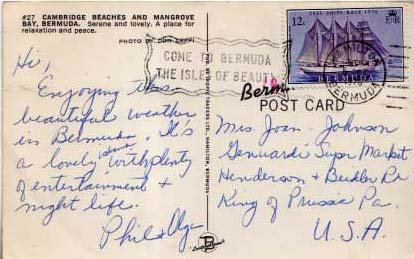 #27 CAMBRIDGE BEACHES AND MANGROVE
BAY, BERMUDA. Serene and lovely. A place for
relaxation and peace.
PHOTO BY
Hi,
Enjoying this
beautiful weather
in Bermuda. It's
a lovely island with plenty
of entertainment +
night life.
Phil & Olga
COME TO BERMUDA
THE ISLE OF BEAUTY
TALL SHIPS RACE 1976
12c
BERMUDA
HAMILTON
BERMUDA
Berm
POST CARD
Mrs. Joan Johnson
Genuardi Super Market
Henderson & Beidler Rd
King of Prussia Pa.
U.S.A.